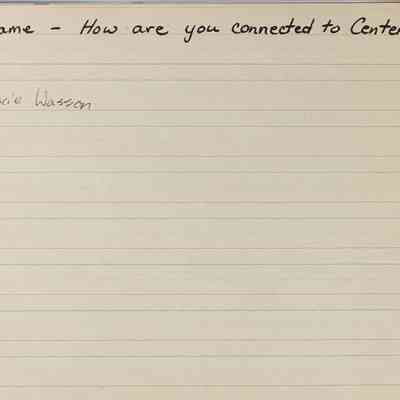 ame - How are you connected to Center
cie Wasson